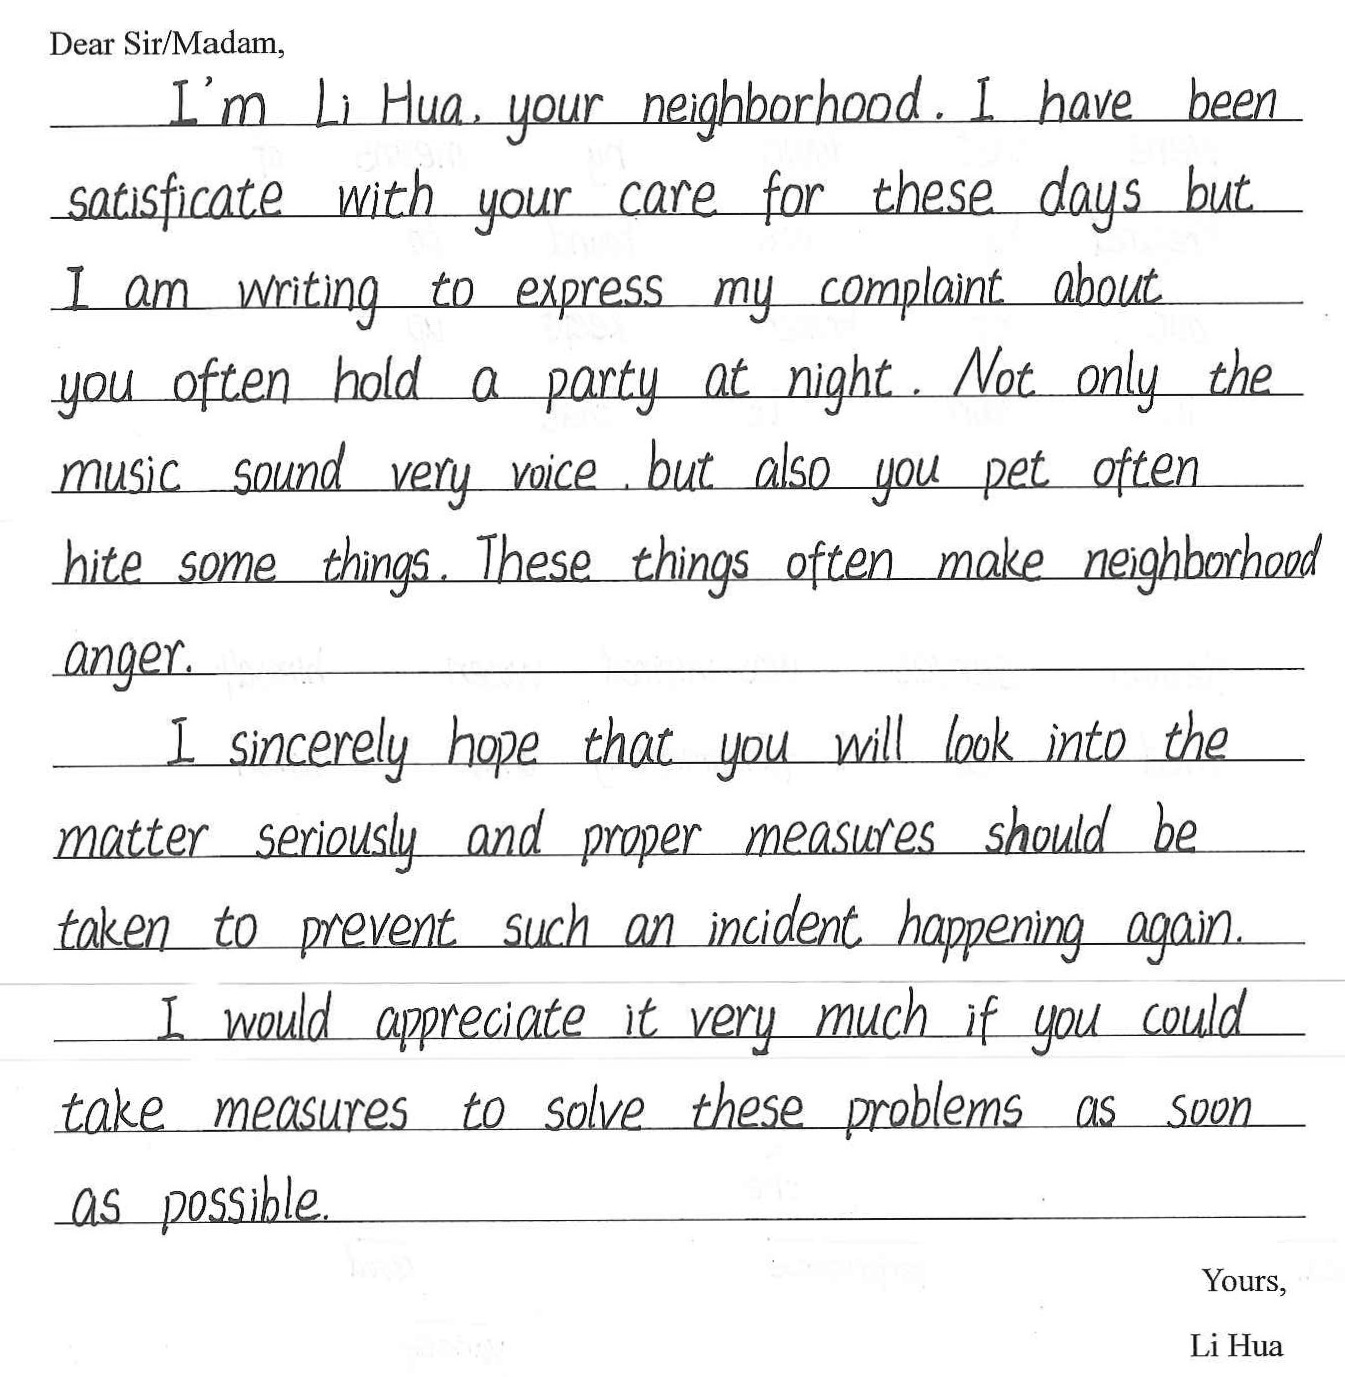 Dear Sir/Madam,
I'm Li Hua, your neighborhood. I have been
satisficate with your care for these days but
I am writing to express my complaint about
you often hold a party at night. Not only the
music sound very voice, but also you pet often
hite some things. These things often make neighborhood
anger.
I sincerely hope that you will look into the
matter seriously and proper measures should be
taken to prevent such an incident happening again.
I would appreciate it very much if you could
take measures to solve these problems as soon
as possible.
Yours,
Li Hua